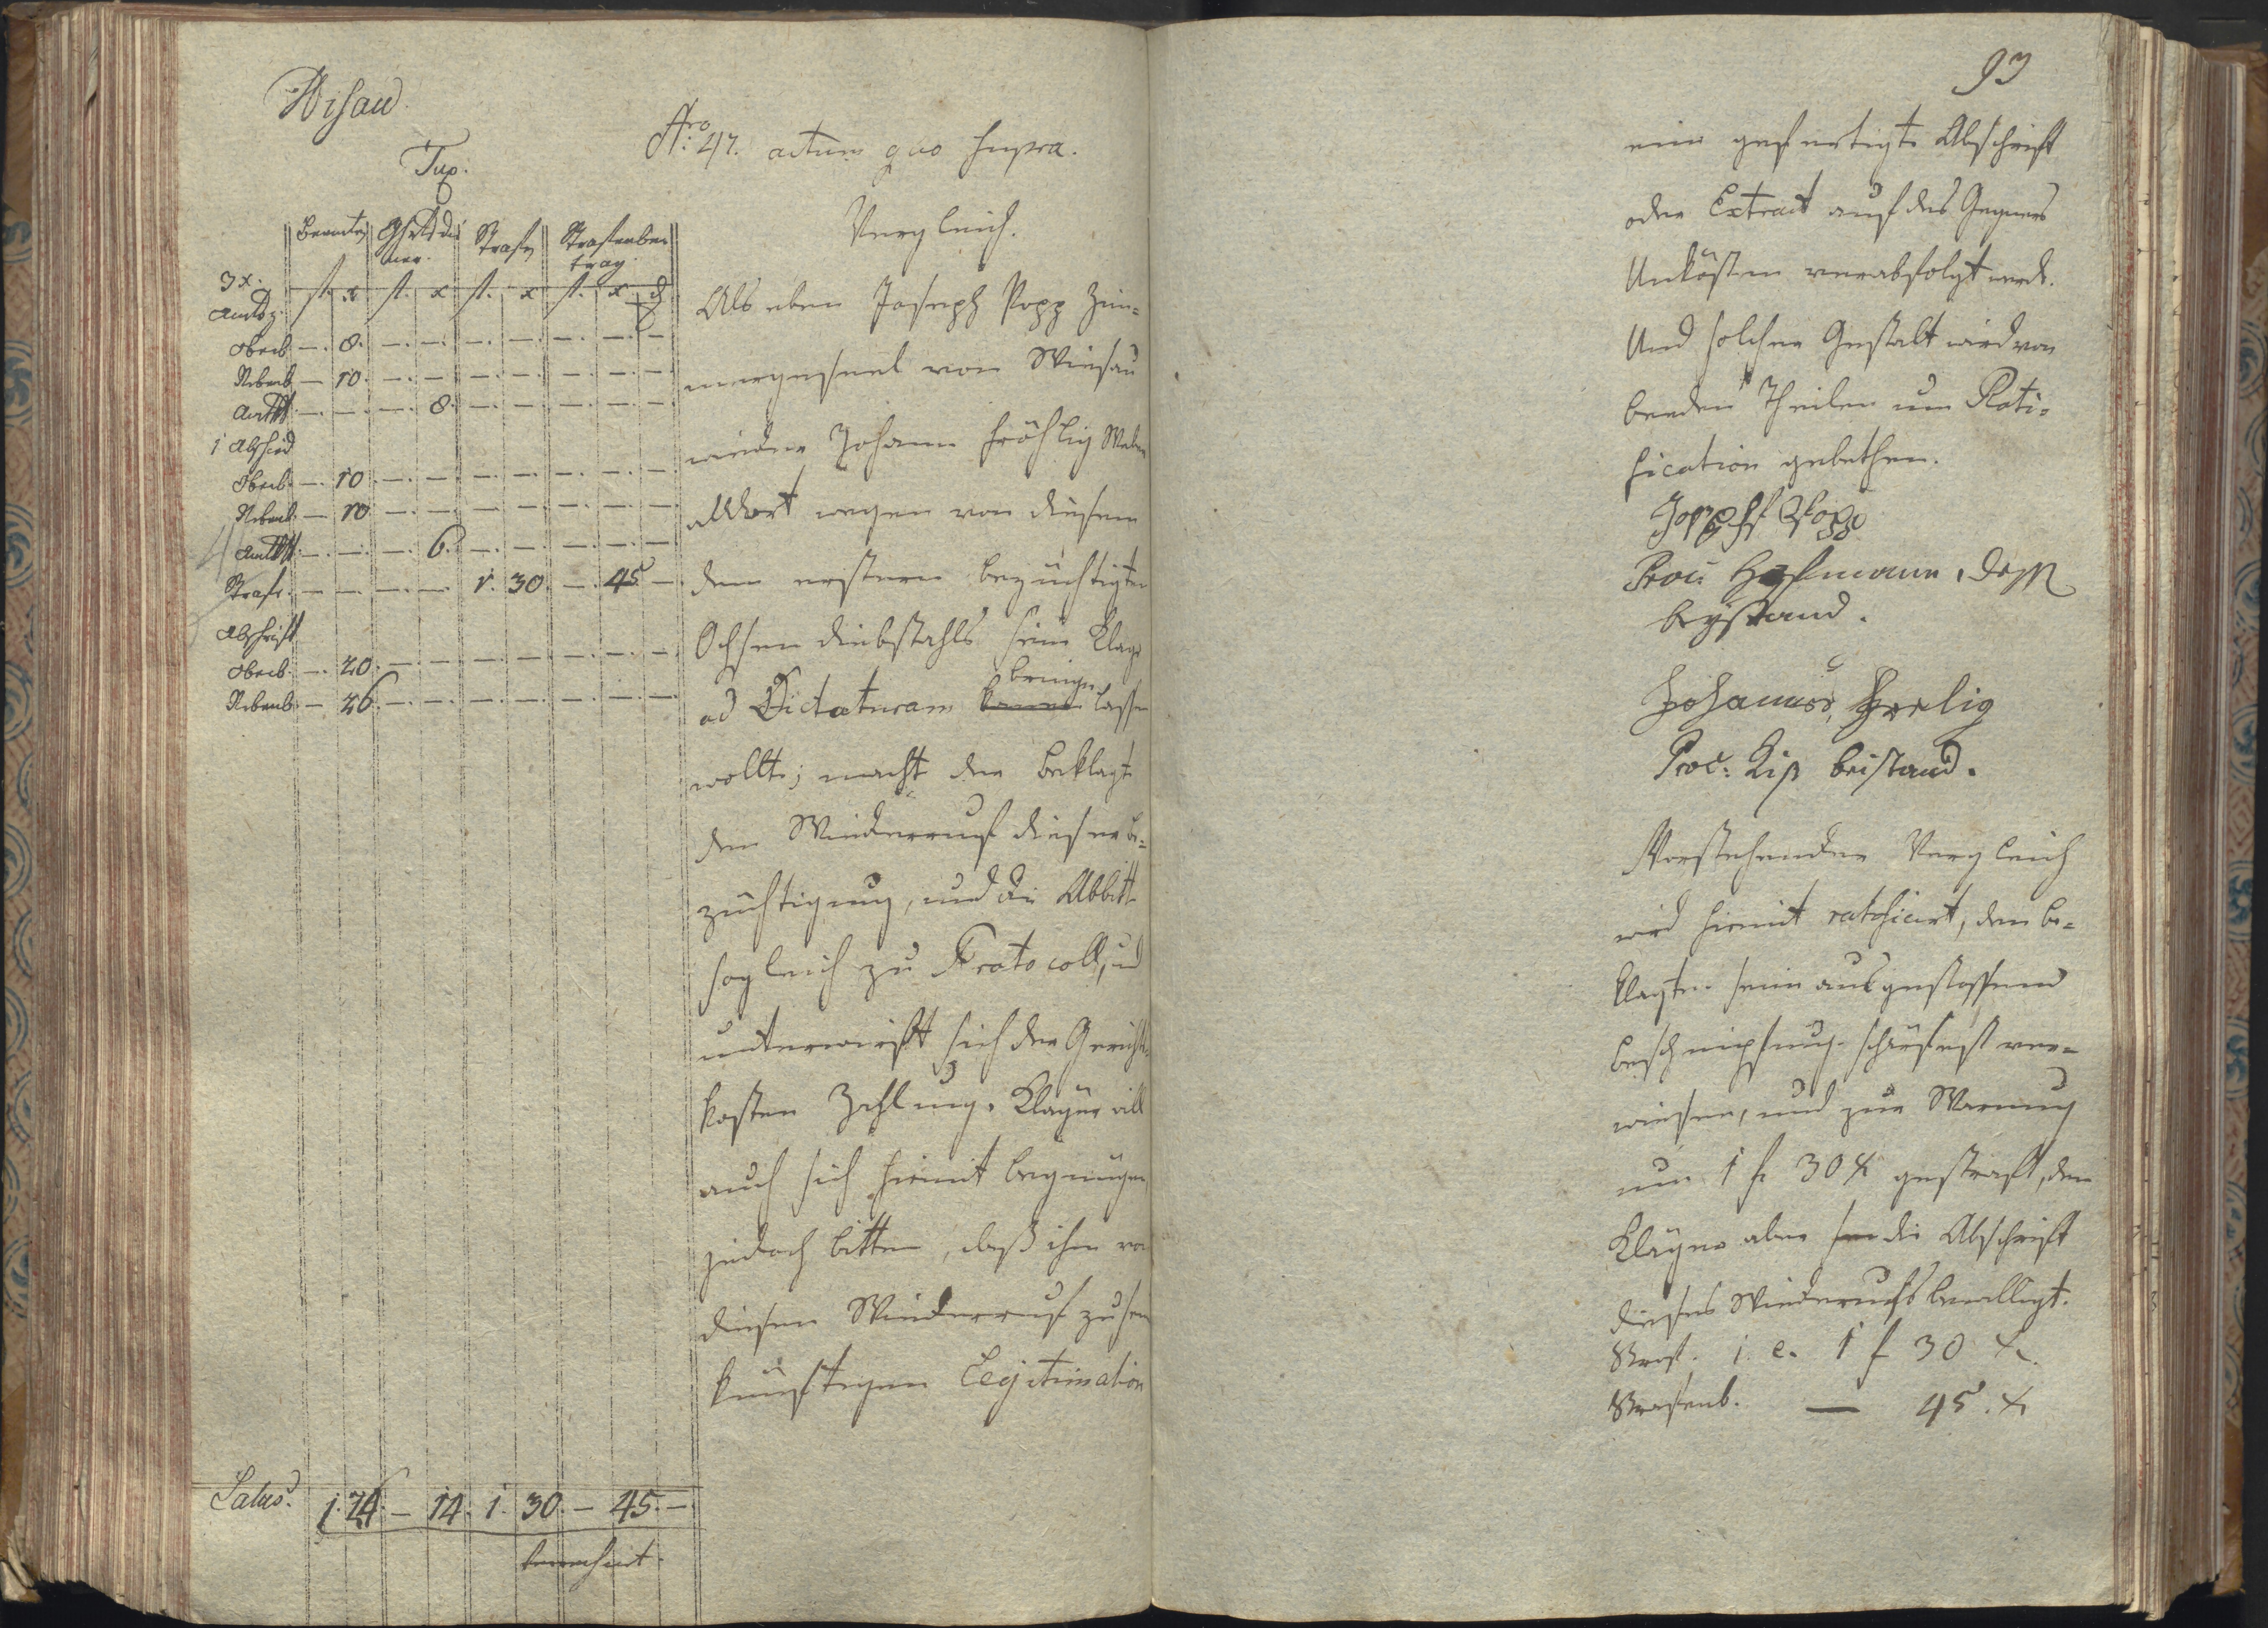 Wisau
Tax.
Beamte Ghrtsdie Strafe Strafenbey
ner. trag
3 x.
fl. x fl. x fl. x fl. x d
Amtsz.
Oberb. —. 8. —. —. —. —. —. —. —
Nebenb. — 10. —. —. —. —. —. —. —
Amtkt. —. —. —. 8. —. —. —. —. —
1 Abschied
Oberb. —. 10. —. —. —. —. —. —. —
Nebenb. — 10. —. —. —. —. —. —. —
Amtkt. —. —. —. 6. —. —. —. —. —
Strafe. —. —. —. —. 1. 30. —. 45. —
Abschrift
Oberb. —. 20. —. —. —. —. —. —. —
Nebenb. — 26. —. —. —. —. —. —. —
Latus. 1. 24. — 14. 1. 30. — 45. —.
berechnet.
Nro: 47. actum quo supra.
Vergleich.
Als eben Joseph Popp Zim=
mergesell von Wiesau
wieder Johann Fröhlig Weber
alldort wegen von diesem
dem erstern bezüchtigten
Ochsen diebstahls seine Klage
bringen
ad Dictaturam lassen
wollte; macht der Beklagte
den Wiederruf dieser be=
züchtigung, und die Abbitte
sogleich zu Protocoll, und
unterwirft sich der Gerichts
kosten Zahlung. Kläger will
auch sich hiemit begnügen
jedoch bitten, daß ihm von
diesem Wiederruf zu sein
künftigen Legitimation
93
eine gefertigte Abschrift
oder Extract auf des Gegners
Unkösten verabfolgt werde.
Und solcher Gestalt wird von
beeden Theilen um Rati=
fication gebethen.
Joseph Popp
Proc: Hofmann, dess
beystand.
Johannes Frelig
Proc: Liß beistand.
Vorstehender Vergleich
wird hiemit ratificirt, dem be=
klagten seine ausgestossene
beschimpfung schärfest ver=
wiesen, und zur Warnung
um 1 fl 30 x gestraft, dem
Kläger aber die Abschrift
dieses Wiederrufs bewilligt.
Straf. i. e. 1 f 30 x.
Strafenb. — 45. x